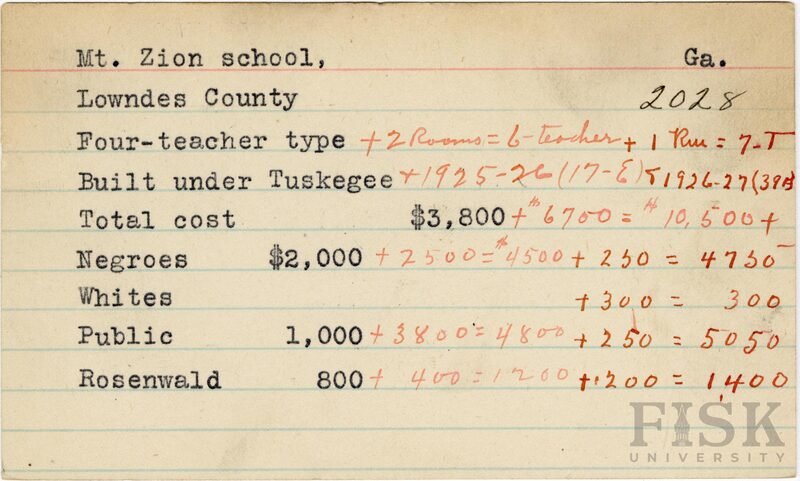 Mt. Zion school, Ga.
Lowndes County 2028
Four-teacher type + 2 Rooms = 6-teacher + 1 Rm = 7-T
Built under Tuskegee + 1925-26 (17-E) + 1926-27 (39
Total cost $3,800 + $6700 = $10,500 +
Negroes $2,000 + 2500 = $4500 + 250 = 4750
Whites + 300 = 300
Public 1,000 + 3800 = 4800 + 250 = 5050
Rosenwald 800 + 400 = 1200 + 200 = 1,400
FISK
UNIVERSITY